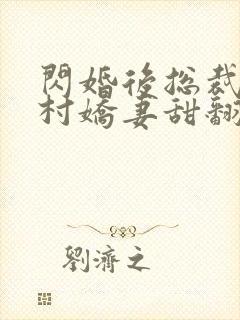 閃婚後總裁
村嬌妻甜翻
劉濟之